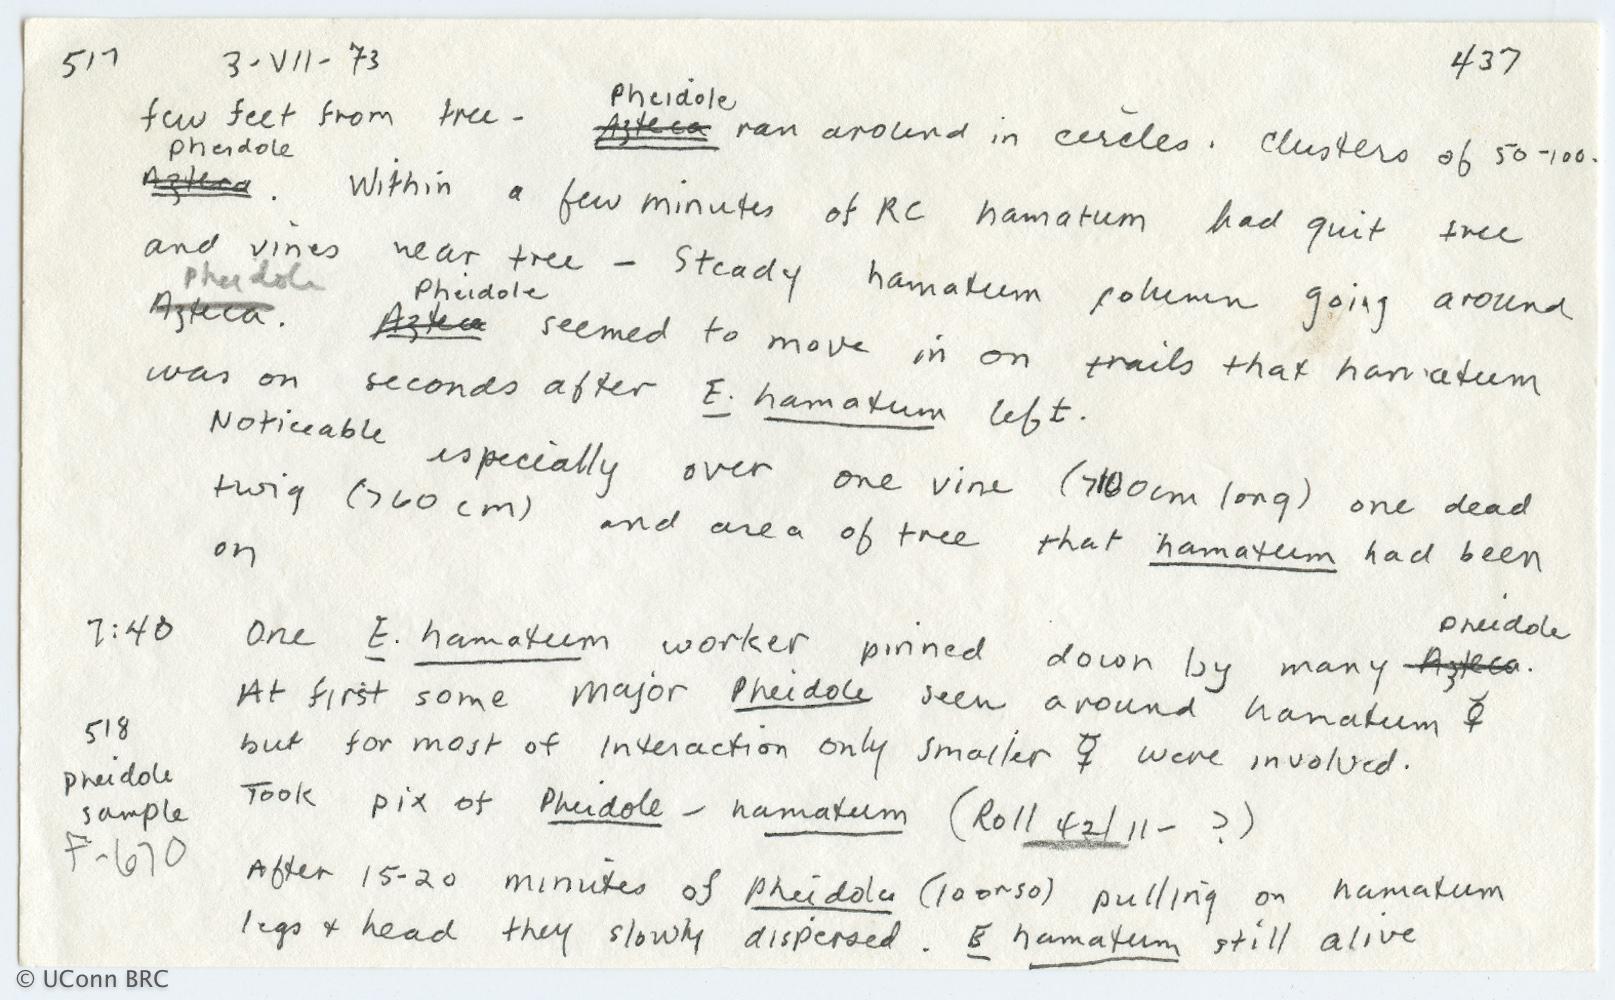 517 3-VII-73 437
Pheidole
few feet from tree - Azteca ran around in circles. Clusters of 50-100.
Pheidole
Azteca. Within a few minutes of RC hamatum had quit tree
and vines near tree - Steady hamatum column going around
Pheidole Pheidole
Azteca. Azteca seemed to move in on trails that hamatum
was on seconds after E. hamatum left.
Noticeable especially over one vine (>100cm long) one dead
twig (>60 cm) and area of tree that hamatum had been
on
Pheidole
7:40 One E. hamatum worker pinned down by many Azteca.
At first some major Pheidole seen around hamatum ☿
518 but for most of interaction only smaller ☿ were involved.
Pheidole
sample Took pix of Pheidole - hamatum (Roll 42/11- ?)
F-670
After 15-20 minutes of Pheidole (10 or so) pulling on hamatum
legs + head they slowly dispersed. E hamatum still alive
© UConn BRC